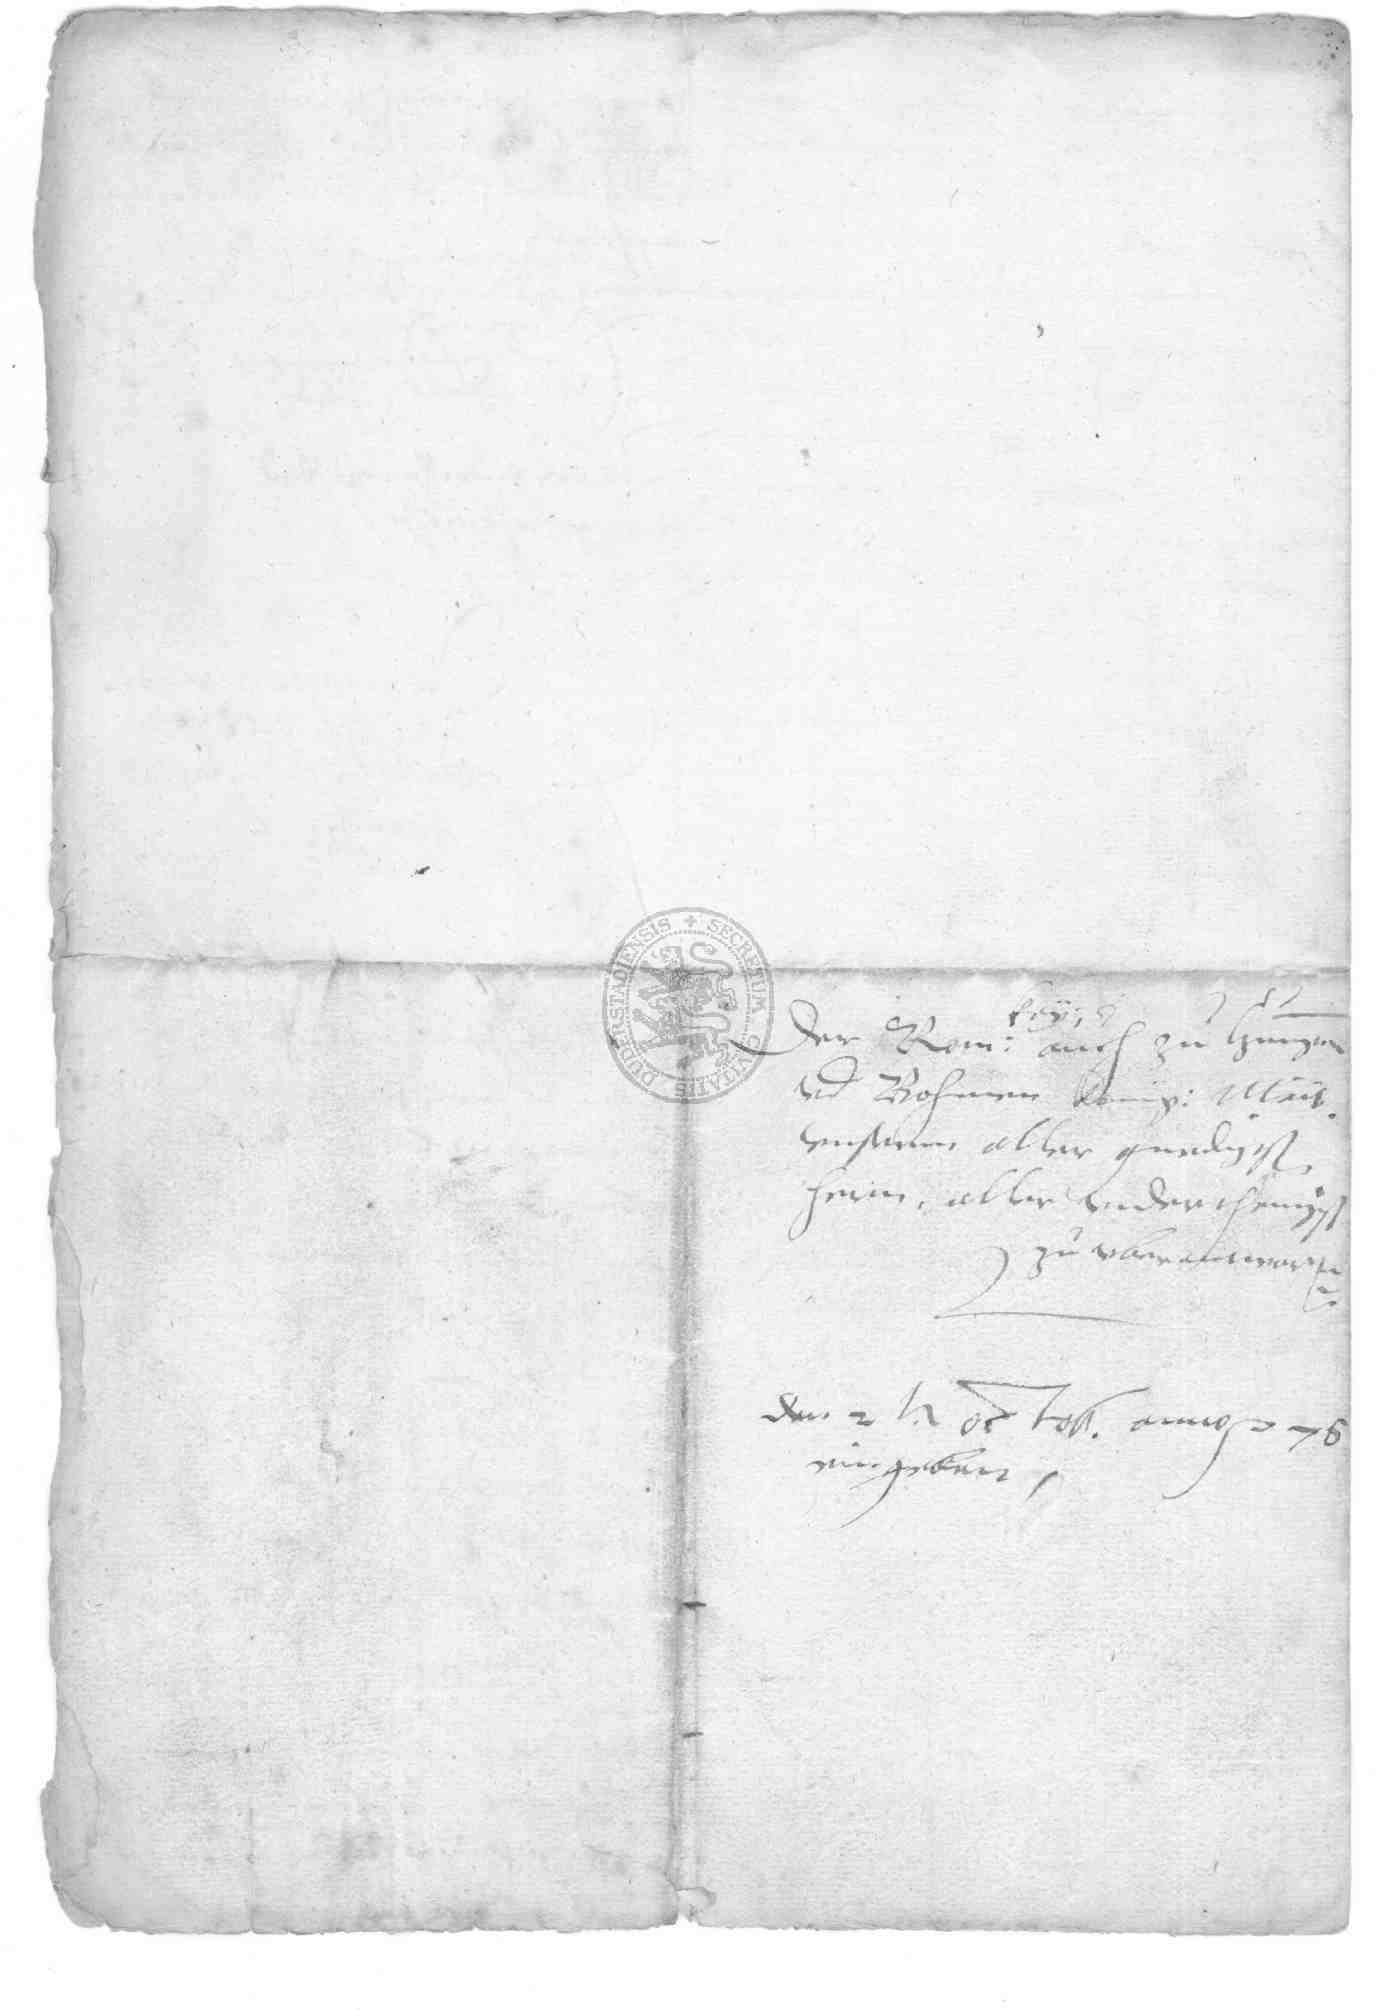 SECRETUM CIVITATIS DUDERSTADIENSIS
keys:
Der Rom: auch zu Hungern
vnd Bohmen konig: Mait.
vnserm aller gnedigst
herrn, aller vnderthenigst
zu vberantworten
den octob. anno 76
eingeben